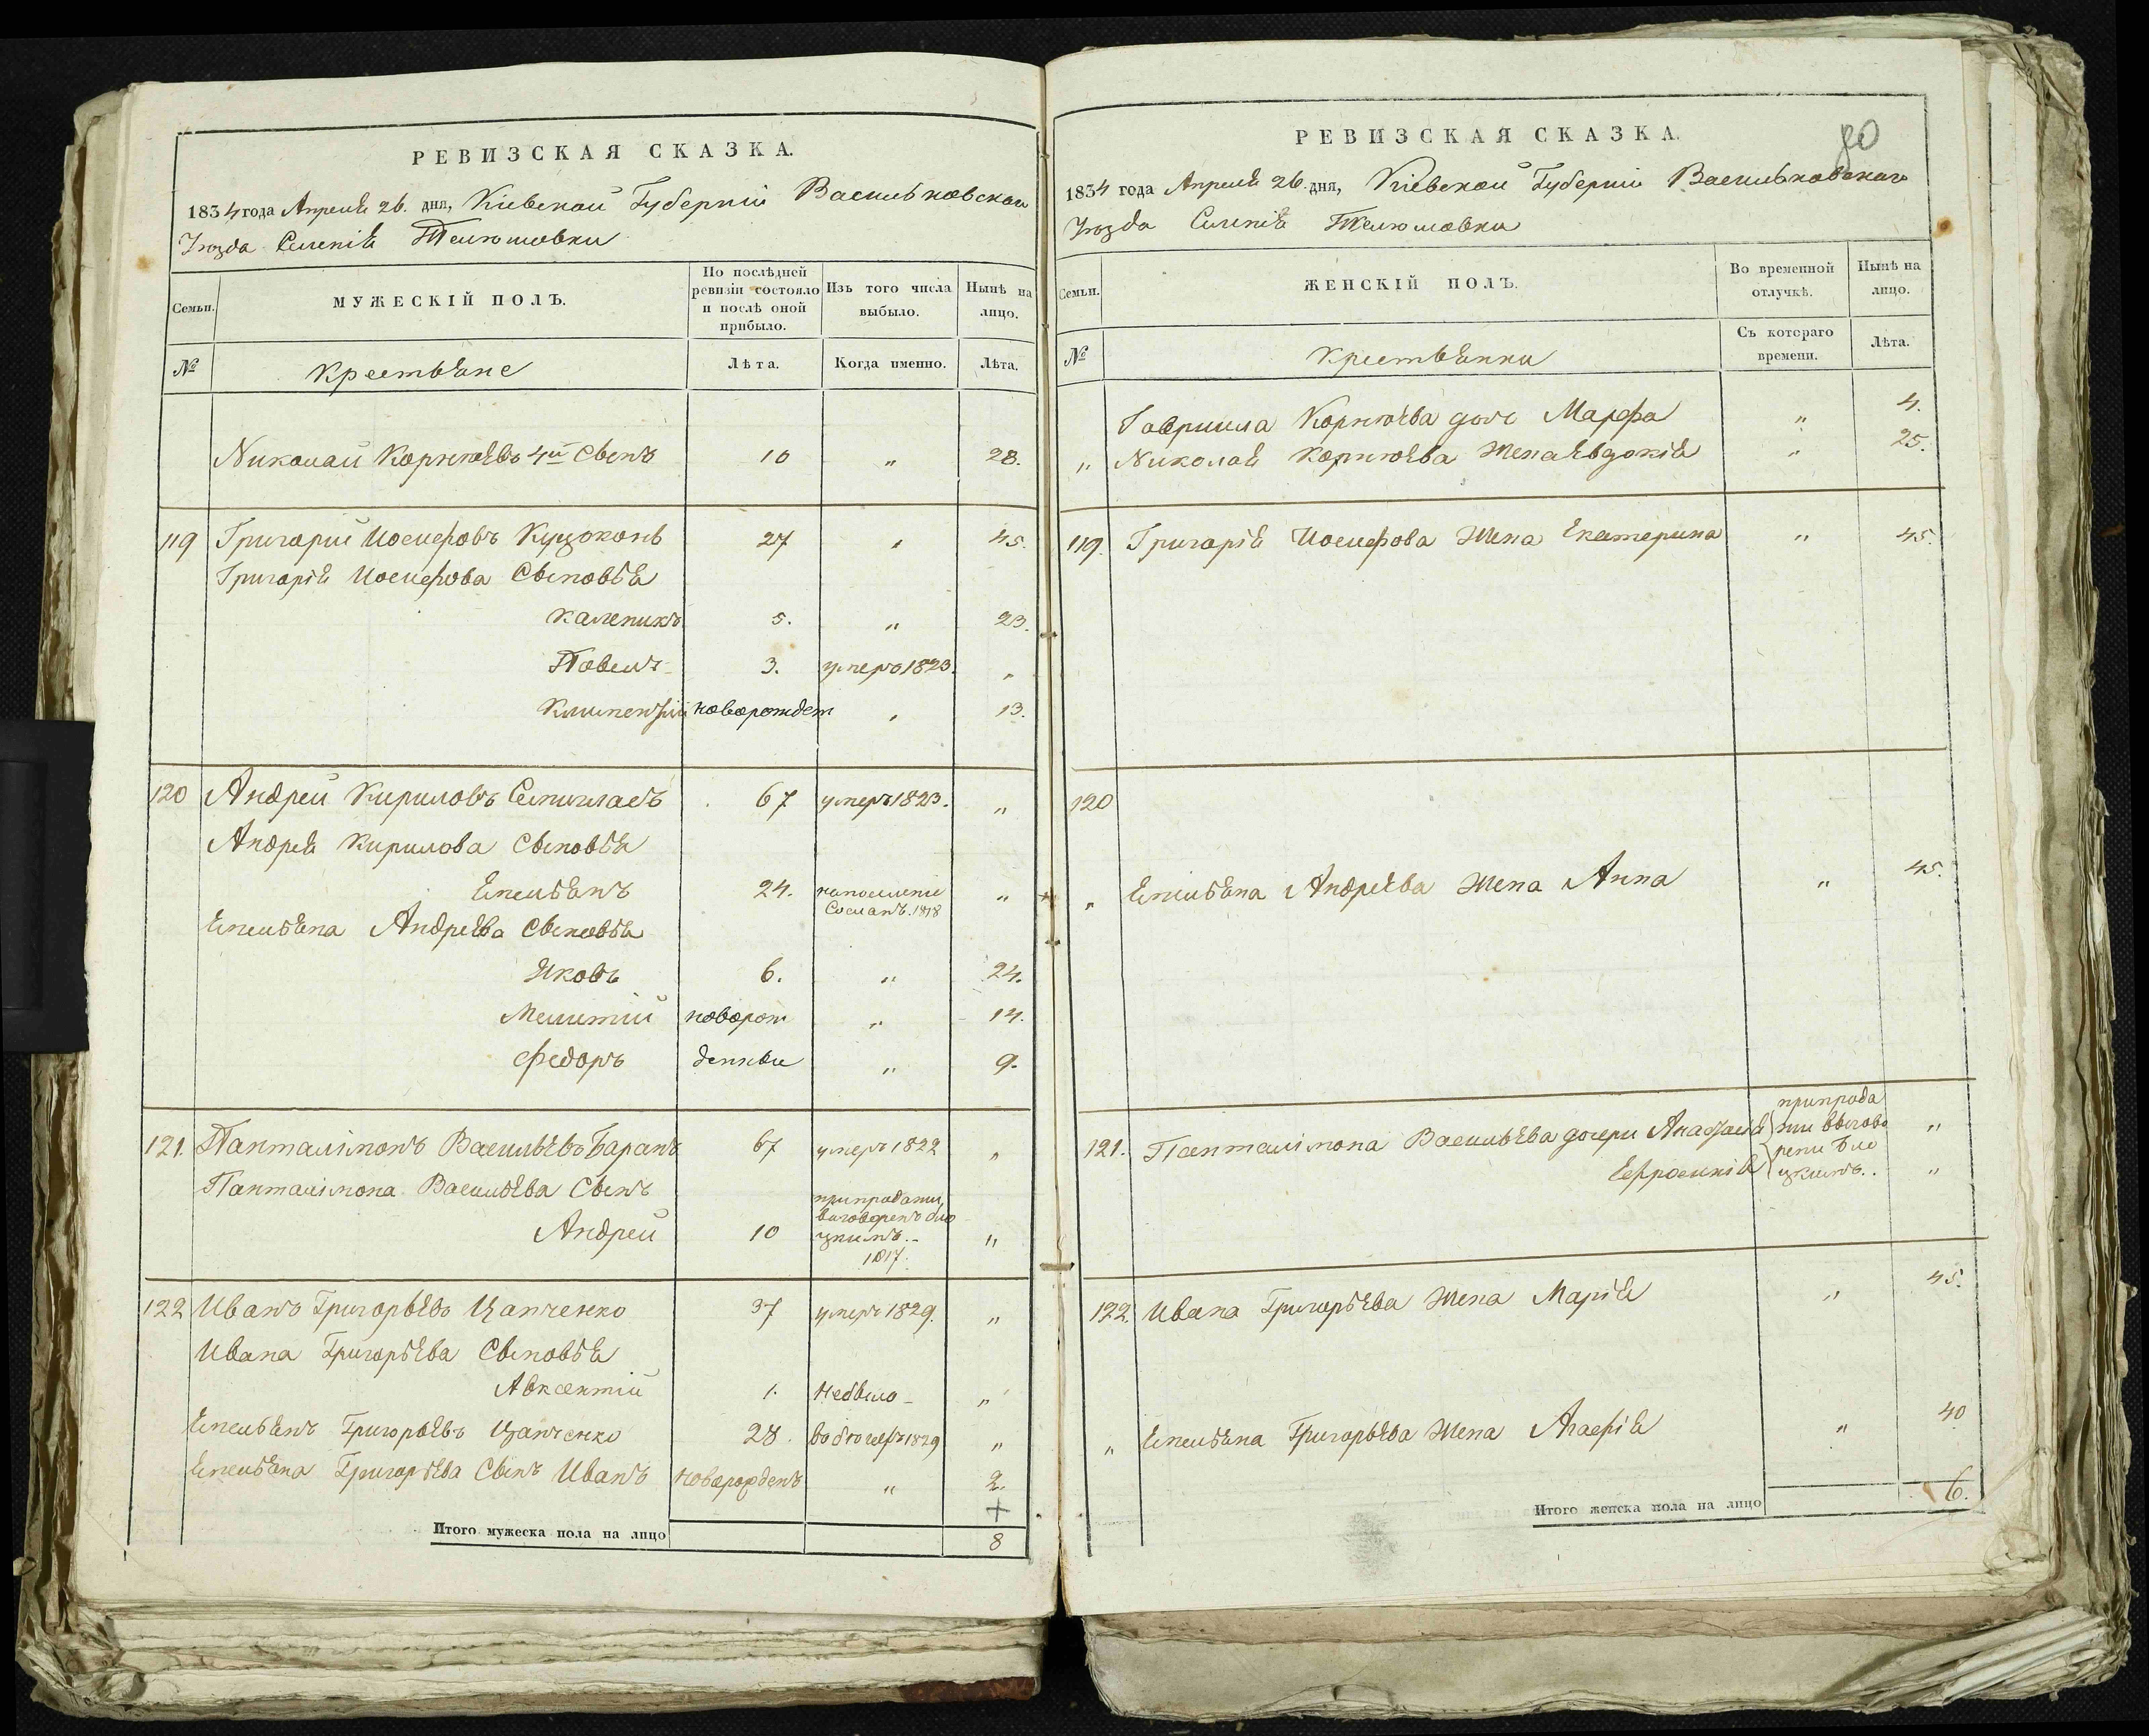 РЕВИЗСКАЯ СКАЗКА.
1834 года Апреля 26. дня, Кіевской Губерніи Васильковскаго
Уѣзда Селенія Телюшовки
Семьи.
МУЖЕСКІЙ ПОЛЪ.
По послѣдней ревизіи состояло и послѣ оной прибыло.
Изъ того числа выбыло.
Нынѣ на лицо.
№
Крестьяне
Лѣта.
Когда именно.
Лѣта.
Николай Корнѣевъ 4й Сынъ 10 „ 28.
119 Григорій Иосифовъ Куцоконь 27 „ 45.
Григорія Иосифова Сыновья
Каленикъ 5. „ 23.
Павелъ 3. умеръ 1823. „
Климентій новорожден „ 13.
120 Андрей Кириловъ 67 умеръ 1823. „
Андрея Кирилова Сыновья
Емельянъ 24. на поселеніе „
Сосланъ. 1818
Емельяна Андреева Сыновья
Яковъ 6. „ 24.
Мелитій новорож „ 14.
Федоръ денные „ 9.
121. Панталімонъ Васильевъ Баранъ 67 умеръ 1822 „
Панталімона Васильева Сынъ
Андрей 10 при продажи „
выговоренъ
1817.
122 Иванъ Григорьевъ Цапченко 37 умеръ 1829. „
Ивана Григорьева Сыновья
Авксентій 1. небыло „
Емельянъ Григорьевъ Цапченко 28. 1829 „
Емельяна Григорьева Сынъ Иванъ новорожденъ „ 2.
+
Итого мужеска пола на лицо 8
80
РЕВИЗСКАЯ СКАЗКА.
1834 года Апреля 26. дня, Кіевской Губерніи Васильковскаго
Уѣзда Селенія Телюшовки
Семьи.
ЖЕНСКІЙ ПОЛЪ.
Во временной отлучкѣ.
Нынѣ на лицо.
№
Крестьянки
Съ котораго времени.
Лѣта.
Гавриила Корнѣева дочь Марфа „ 4.
„ Николая Корнѣева Жена Евдокія „ 25.
119. Григорія Иосифова Жена Екатерина „ 45.
120
„ Емельяна Андреева Жена Анна „ 45.
121. Панталімона Васильева дочери Анастасія при прода „
жи выгово
Ефросинія рены „
122. Ивана Григорьева Жена Марія „ 45.
„ Емельяна Григорьева Жена Агафія „ 40
Итого женска пола на лицо 6.